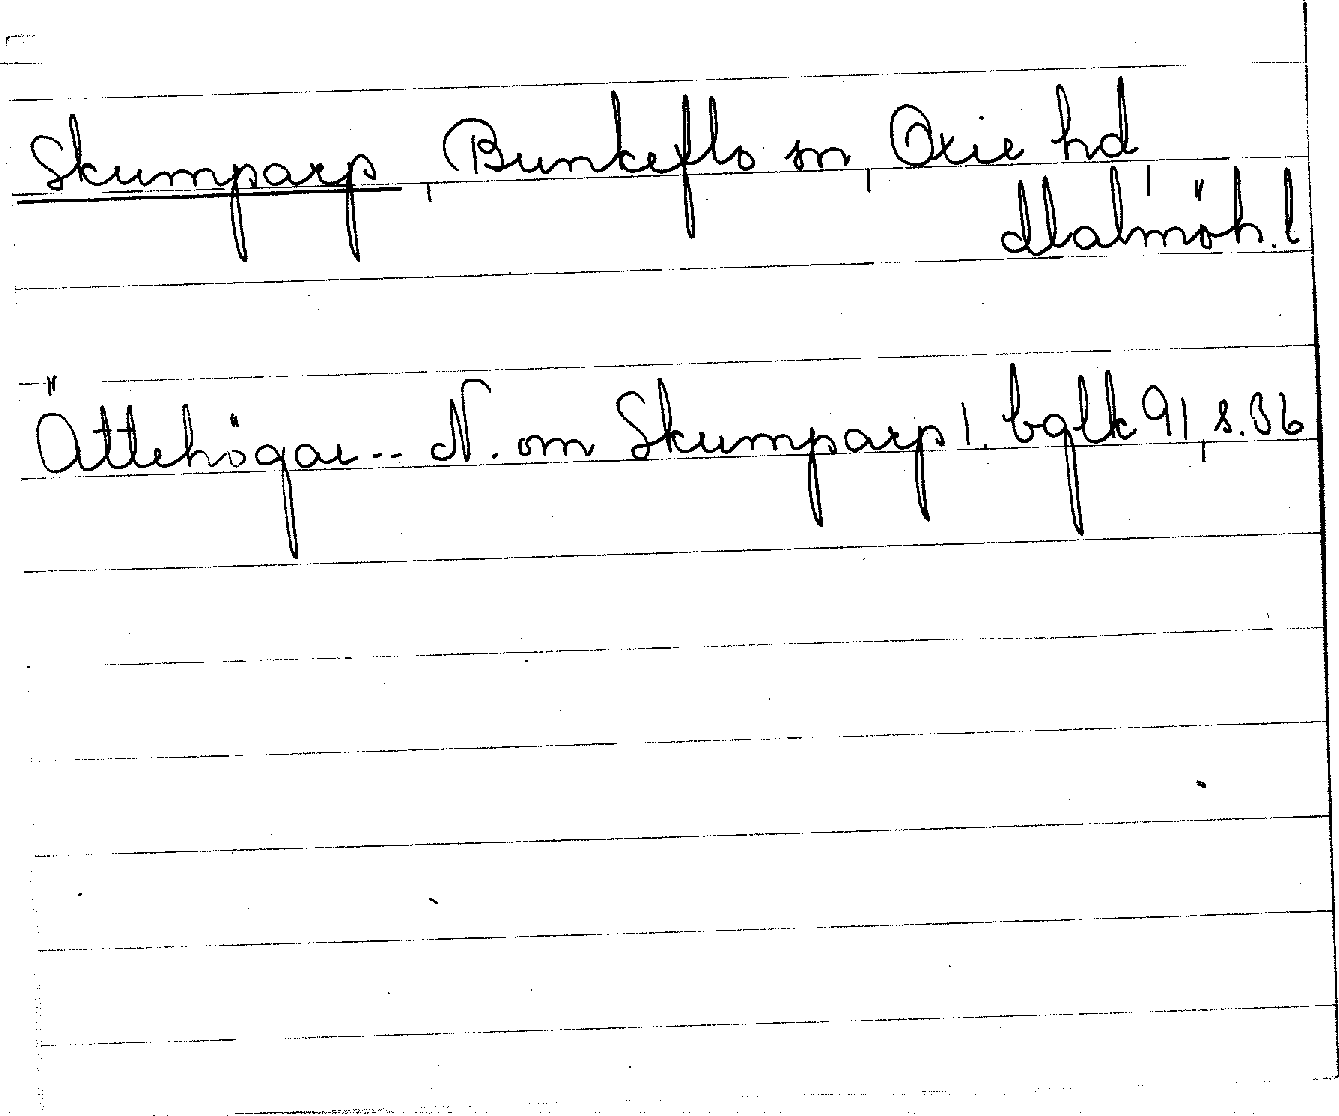 Skumparp, Bunkeflo sn, Oxie hd,
Malmöh. l
Ättehögar -- N. om Skumparp!. bglk 91, s. 36